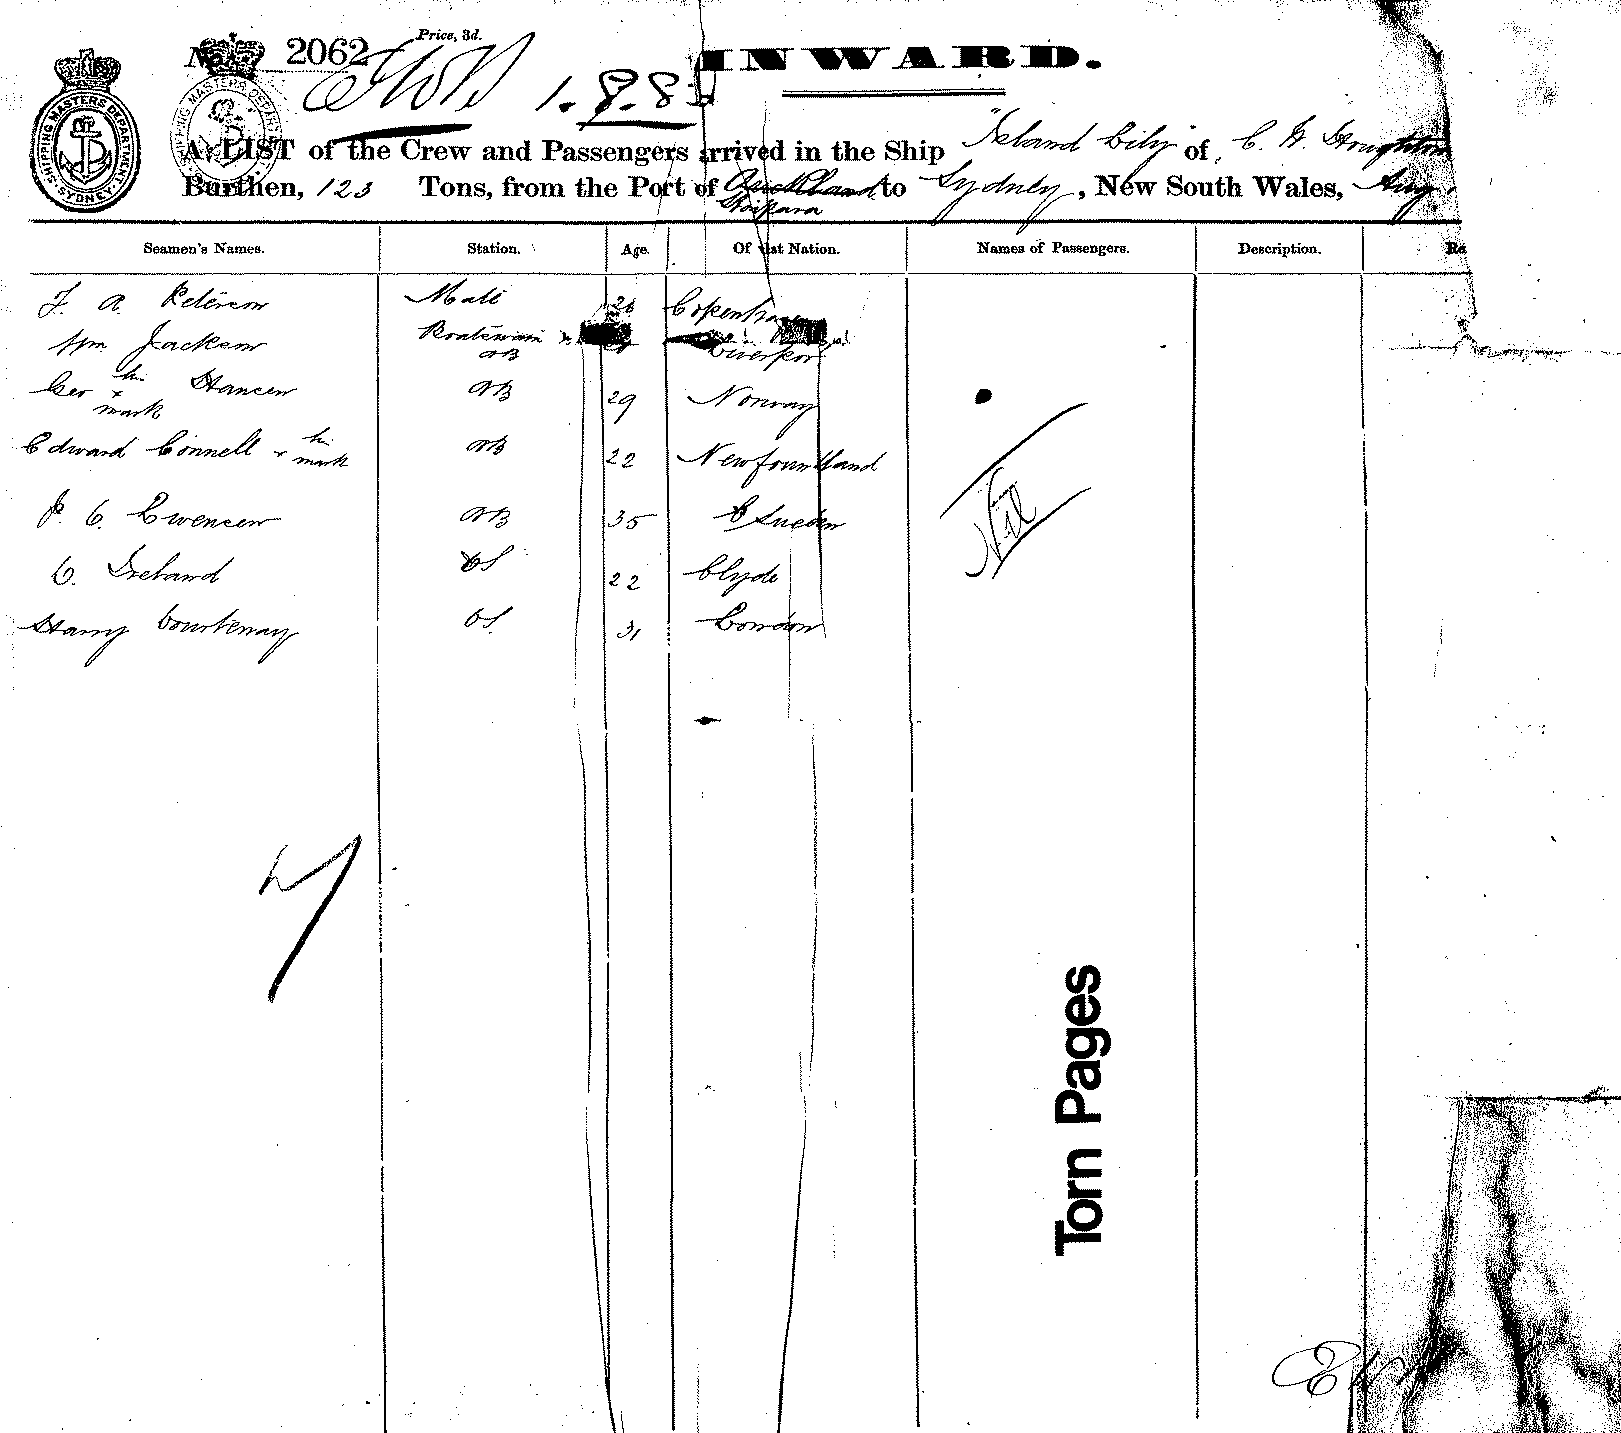 Price, 3d.
No. 2062
1.8.8
INWARD.
SHIPPING MASTERS DEPARTMENT SYDNEY
A LIST of the Crew and Passengers arrived in the Ship "Island Lily" of, C. H. Houghton
Burthen, 123 Tons, from the Port of Auckland Kaipara to Sydney, New South Wales, Aug.
Seamen's Names. Station. Age. Of what Nation. Names of Passengers. Description.
F. A. Peterson Mate 26 Copenhagen
Jackson Boatswain AB Liverpool
Geo his x mark Hansen AB 29 Norway
Edward Connell x his mark AB 22 Newfoundland
P. C. Swensen AB 35 Sweden
C. Ireland OS 22 Clyde
Harry Courtenay OS. 31 London
Nil
7
Torn Pages